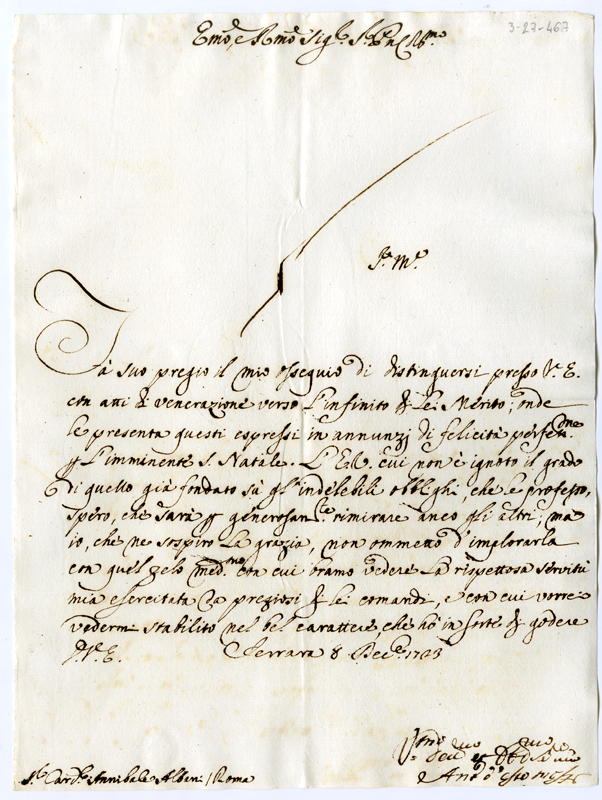 3-27-467
Emo, e Rmo Sigr. Sr. Pne Colmo
Fà suo pregio il mio ossequio di distinguersi presso V.E.
con atti di venerazione verso l'infinito di lei Merito; onde
le presenta questi espressi in annunzj di felicità
l'imminente S. Natale. L'E.V. cui non è ignoto il grado
di quello già fondato sù gl'indelebili obblighi, che le professo,
spero, che sarà generosante. rimirare anco gli altri; ma
io, che ne sospiro la grazia, non ommetto d'implorarla
con quel zelo medmo. con cui bramo vedere la rispettosa servitù
mia esercitata da preziosi di lei comandi, e con cui vorrei
vedermi stabilito nel bel carattere, che hò in sorte di godere
D.V.E. Ferrara 8 Decre. 1723
Sr. Cardle. Annibale Albani / Roma